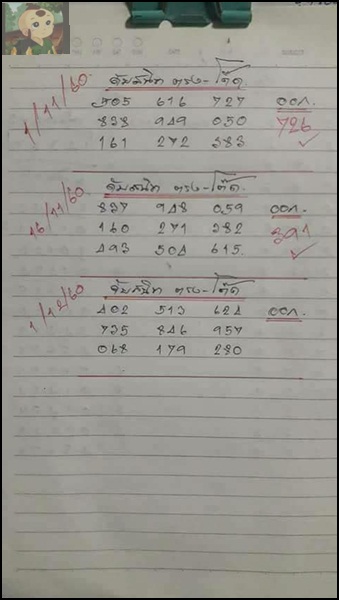 1/11/60 จับสนิท ตรง-โต๊ด
505 616 727 ออก.
838 949 050 726
161 272 383
16/11/60 จับสนิท ตรง-โต๊ด
837 948 059 ออก.
160 271 382 391
493 504 615.
1/12/60 จับสนิท ตรง-โต๊ด
402 513 624 ออก.
735 846 957
068 179 280